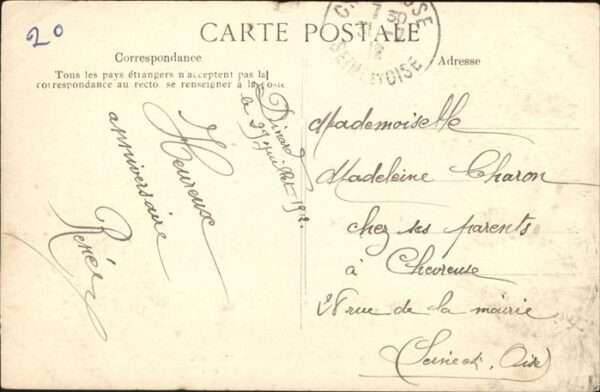 20
CARTE POSTALE
Correspondance
Tous les pays étrangers n'acceptent pas la
correspondance au recto se renseigner à la
Adresse
7 30
SEINE-ET-OISE
Dinard
le 29 juillet 1912.
Heureux
anniversaire
Renée
Mademoiselle
Madeleine Charon
chez ses parents
à Chevreuse
rue de la mairie
(Seine et Oise)